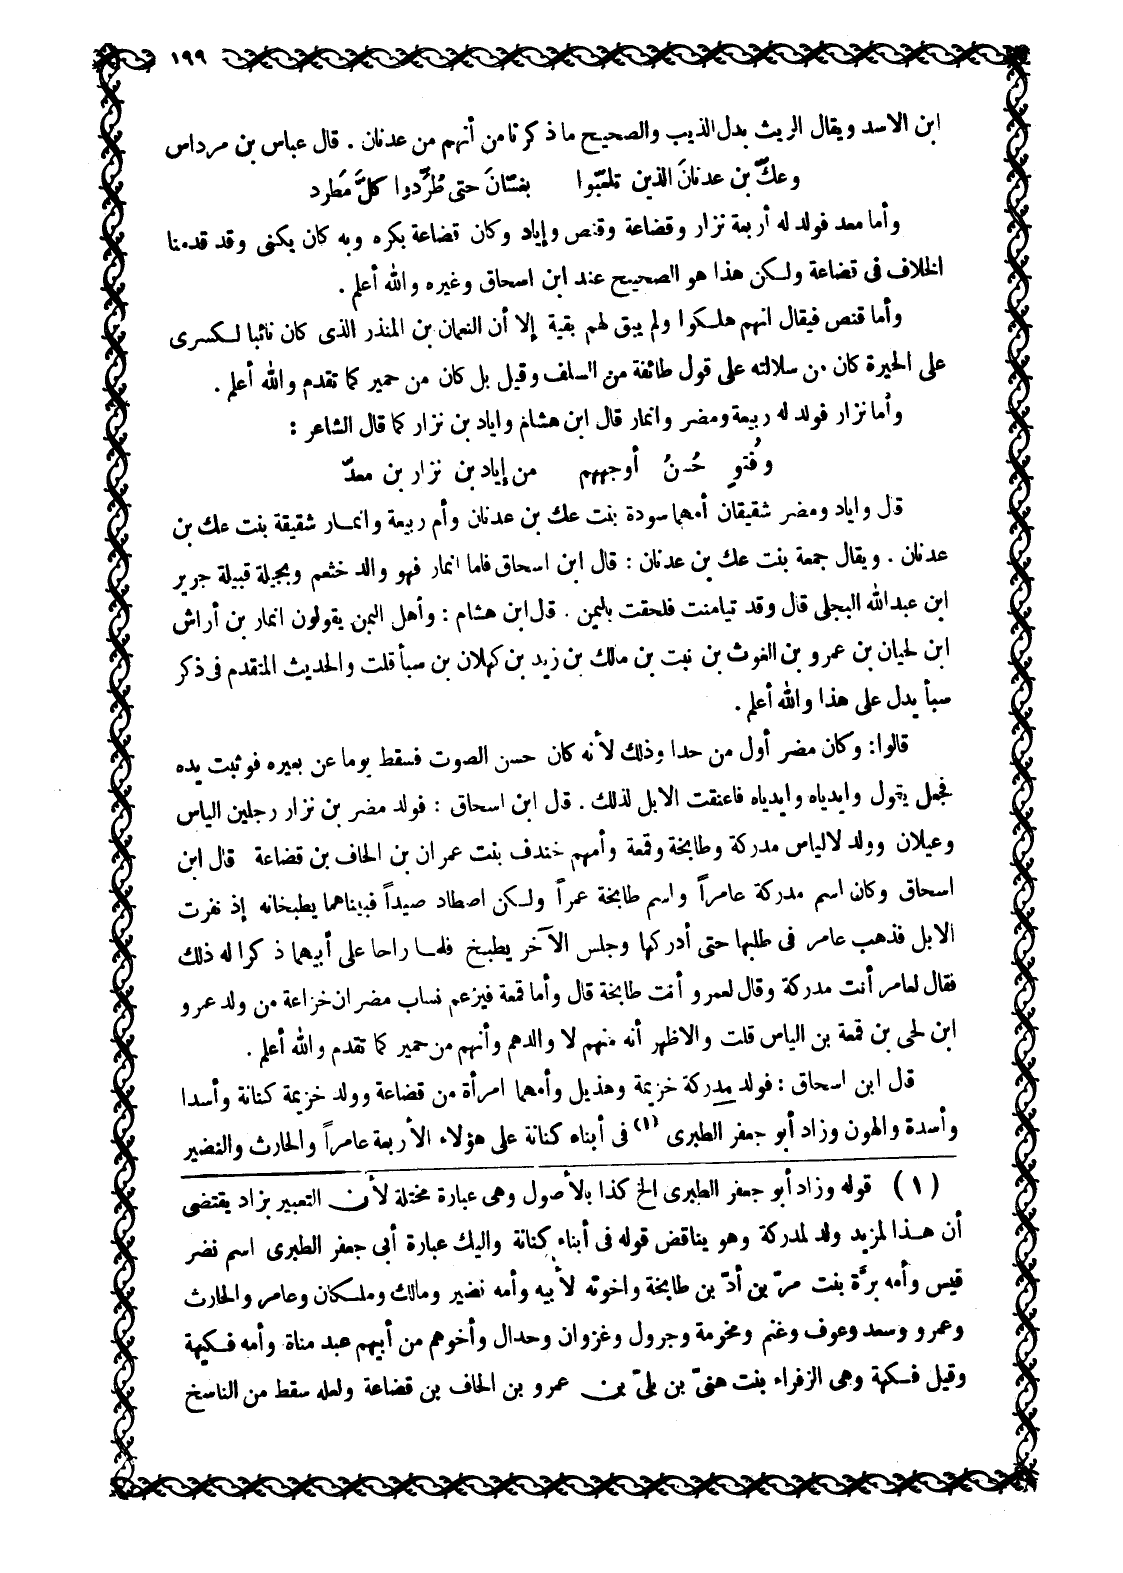 ١٩٩
ابن الاسد ويقال الريث بدل الذيب والصحيح ما ذكرنا من أنهم من عدنان . قال عباس بن مرداس
وعكّ بن عدنانَ الذين تلعّبوا بغسّانَ حتى طُرِّدوا كلَّ مَطرد
وأما معد فولد له أربعة نزار وقضاعة وقنص وإياد وكان قضاعة بكره وبه كان يكنى وقد قدمنا
الخلاف فى قضاعة ولكن هذا هو الصحيح عند ابن اسحاق وغيره والله أعلم .
وأما قنص فيقال انهم هلكوا ولم يبق لهم بقية إلا أن النعمان بن المنذر الذى كان نائبا لكسرى
على الحيرة كان من سلالته على قول طائفة من السلف وقيل بل كان من حمير كما تقدم والله أعلم .
وأما نزار فولد له ربيعة ومضر وانمار قال ابن هشام واياد بن نزار كما قال الشاعر :
وفُتوٍ حُسنُ أوجههم من إياد بن نزار بن معدّ
قال واياد ومضر شقيقان أمهما سودة بنت عك بن عدنان وأم ربيعة وانمار شقيقة بنت عك بن
عدنان . ويقال جمعة بنت عك بن عدنان : قال ابن اسحاق فاما انمار فهو والد خثعم وبجيلة قبيلة جرير
ابن عبدالله البجلى قال وقد تيامنت فلحقت باليمن . قال ابن هشام : وأهل اليمن يقولون انمار بن أراش
ابن لحيان بن عمرو بن الغوث بن نبت بن مالك بن زيد بن كهلان بن سبأ قلت والحديث المتقدم فى ذكر
سبأ يدل على هذا والله أعلم .
قالوا: وكان مضر أول من حدا وذلك لأنه كان حسن الصوت فسقط يوما عن بعيره فوثبت يده
فجعل يقول وايدياه وايدياه فاعنقت الابل لذلك . قال ابن اسحاق : فولد مضر بن نزار رجلين الياس
وعيلان وولد لالياس مدركة وطابخة وقمعة وأمهم خندف بنت عمران بن الحاف بن قضاعة قال ابن
اسحاق وكان اسم مدركة عامراً واسم طابخة عمراً ولكن اصطاد صيداً فبيناهما يطبخانه إذ نفرت
الابل فذهب عامر فى طلبها حتى أدركها وجلس الآخر يطبخ فلما راحا على أبيهما ذكرا له ذلك
فقال لعامر أنت مدركة وقال لعمرو أنت طابخة قال وأما قمعة فيزعم نساب مضر ان خزاعة من ولد عمرو
ابن لحى بن قمعة بن الياس قلت والاظهر أنه منهم لا والدهم وأنهم من حمير كما تقدم والله أعلم .
قال ابن اسحاق : فولد مدركة خزيمة وهذيل وأمهما امرأة من قضاعة وولد خزيمة كنانة وأسدا
وأسدة والهون وزاد أبو جعفر الطبرى (١) فى أبناء كنانة على هؤلاء الأربعة عامراً والحارث والنضير
(١) قوله وزاد أبو جعفر الطبرى الخ كذا بالأصول وهى عبارة مختلة لأن التعبير بزاد يقتضى
أن هذا المزيد ولد لمدركة وهو يناقض قوله فى أبناء كنانة واليك عبارة أبى جعفر الطبرى اسم نضر
قيس وأمه برَّة بنت مرّ بن أدّ بن طابخة واخوته لأبيه وأمه نضير ومالك وملكان وعامر والحارث
وعمرو وسعد وعوف وغنم ومخرمة وجرول وغزوان وحدال وأخوهم من أبيهم عبد مناة وأمه فكيهة
وقيل فكهة وهى الزفراء بنت هنىّ بن بلىّ بن عمرو بن الحاف بن قضاعة ولعله سقط من الناسخ